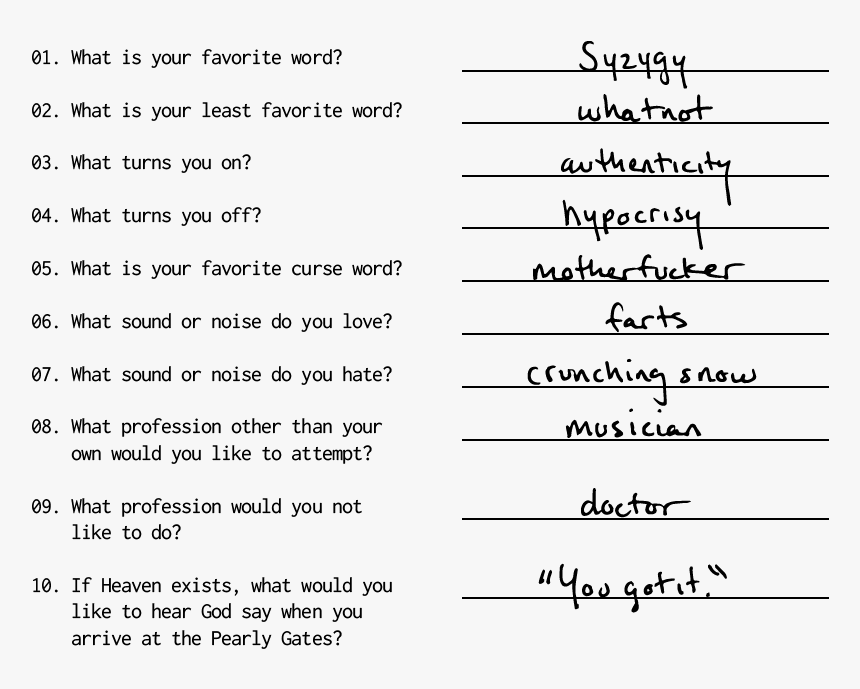 01. What is your favorite word? Syzygy
02. What is your least favorite word? whatnot
03. What turns you on? authenticity
04. What turns you off? hypocrisy
05. What is your favorite curse word? motherfucker
06. What sound or noise do you love? farts
07. What sound or noise do you hate? crunching snow
08. What profession other than your musician
own would you like to attempt?
09. What profession would you not doctor
like to do?
10. If Heaven exists, what would you "You got it."
like to hear God say when you
arrive at the Pearly Gates?